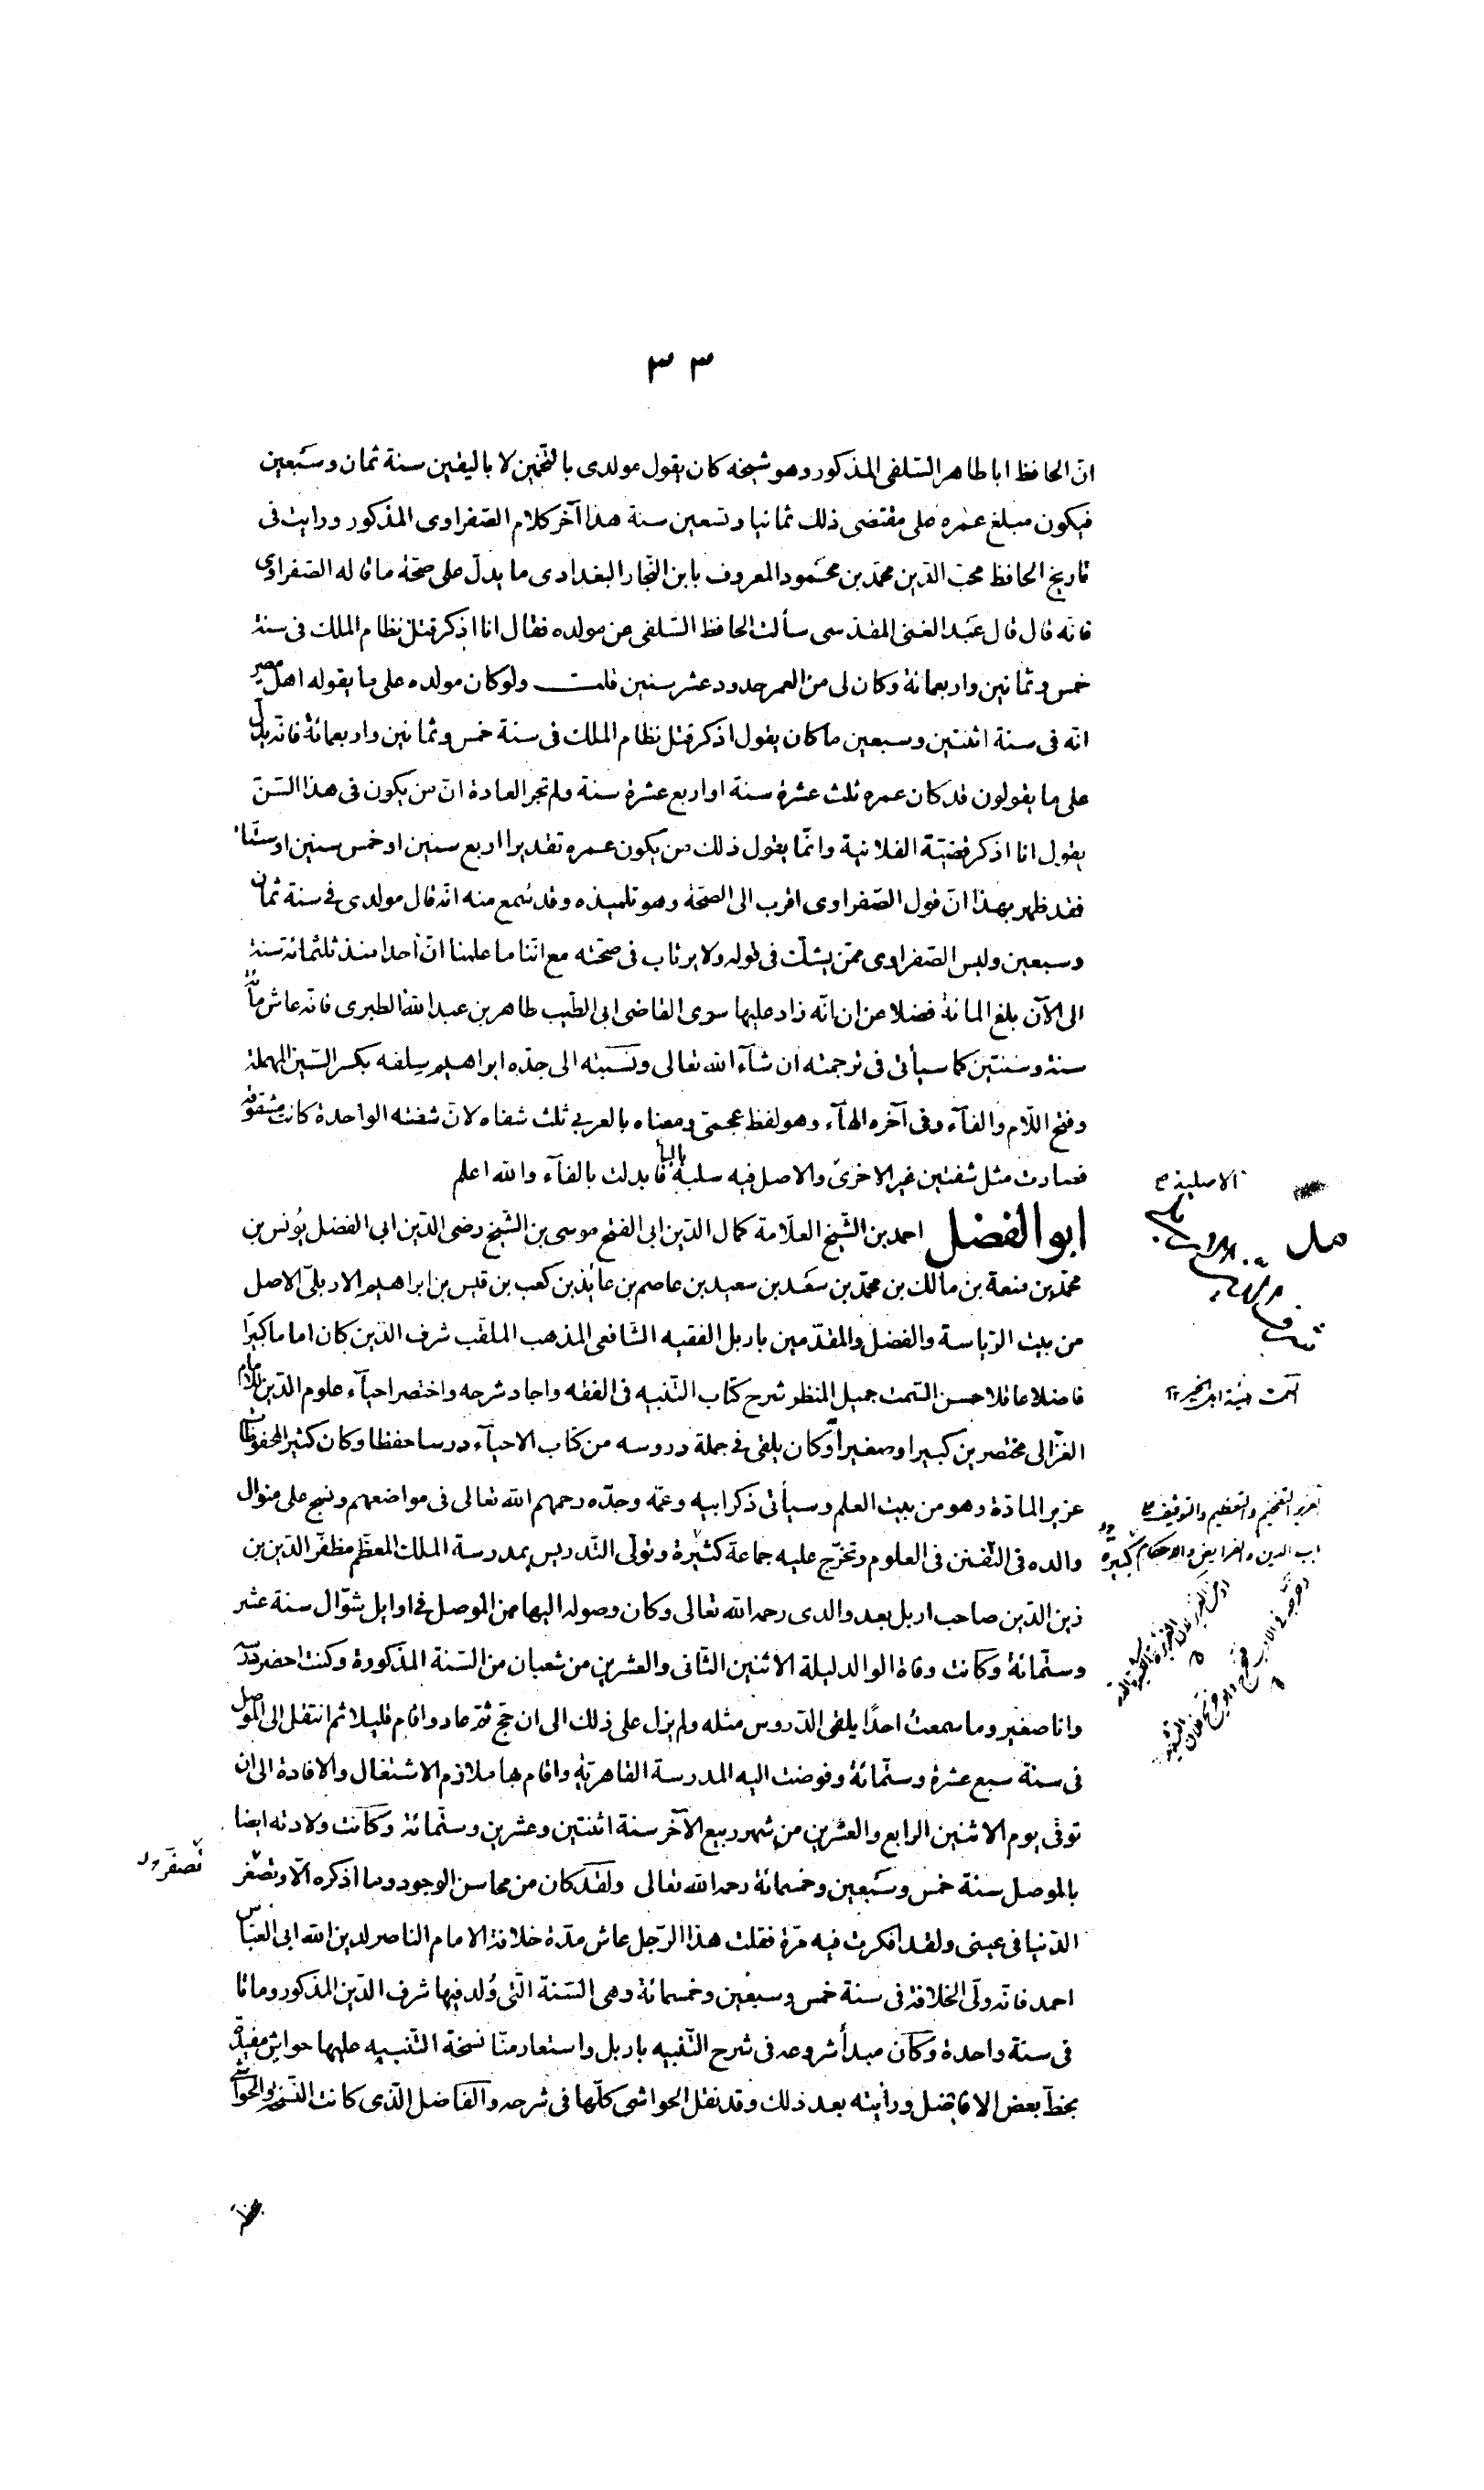 ٣٣
انّ الحافظ ابا طاهر السّلفى المذكور وهو شيخه كان يقول مولدى بالتّخمين لا باليقين سنة ثمان وسَبعين
فيكون مبلغ عمره على مقتضى ذلك ثمانيا وتسعين سنة هذا آخر كلام الصّفراوى المذكور ورايت فى
تاريخ الحافظ محبّ الدّين محمّد بن محمود المعروف بابن النّجّار البغدادى ما يدلّ على صحّة ما قاله الصّفراوى
فانّه قال قال عَبد الغنى المقدسى سألت الحافظ السّلفى عن مولده فقال انا اذكر قتل نظام الملك فى سنة
خمس وثمانين واربعمائة وكان لى من العمر حدود عشر سنين قلت ولو كان مولده على ما يقوله اهل مصر
انّه فى سنة اثنتين وسبعين ما كان يقول اذكر قتل نظام الملك فى سنة خمس وثمانين واربعمائة فانّه يدلّ
على ما يقولون قد كان عمره ثلث عشرة سنة او اربع عشرة سنة ولم تجر العادة انّ من يكون فى هذا السّنّ
يقول انا اذكر قضيّة الفلانية وانّما يقول ذلك من يكون عمره تقديرا اربع سنين او خمس سنين او ستّا
فقد ظهر بهذا انّ قول الصّفراوى اقرب الى الصحّة وهو تلميذه وقد سُمع منه انّه قال مولدى فى سنة ثمان
وسبعين وليس الصّفراوى ممّن يشكّ فى قوله ولا يرتاب فى صحّته مع انّنا ما علمنا انّ أحدا منذ ثلثمائة سنة
الى الآن بلغ المائة فضلا عن ان انّه زاد عليها سوى القاضى ابى الطّيب طاهر بن عبد الله الطبرى فانّه عاش مائة
سنة وسَنتين كما سيأتى فى ترجمته ان شآء الله تعالى ونَسبته الى جدّه ابراهيم سِلفه بكسر السّين المهملة
وفتح اللّام والفآء وفى آخره الهآء وهو لفظ عجمىّ ومعناه بالعربى ثلث شفاه لانّ شفته الواحدة كانت مشقوقة
فصارت مثل شفتين غير الاخرى والاصل فيه سلبه بالبآ فابدلت بالفآء والله اعلم
الاصلية
ابو الفضل احمد بن الشّيخ العلّامة كمال الدّين ابى الفتح موسى بن الشّيخ رضى الدّين ابى الفضل يُونس بن
محمّد بن منعة بن مالك بن محمّد بن سَعد بن سعيد بن عاصم بن عائذ بن كعب بن قيس بن ابراهيم الاربلىّ الاصل
من بيت الرّياسة والفضل والمقدّمين باربل الفقيه الشّافعى المذهب الملقّب شرف الدّين كان اماما كبيرًا
فاضلا عاقلا حسن السّمت جميل المنظر شرح كتاب التّنبيه فى الفقه واجاد شرحه واختصر احيآء علوم الدّين للامام
الغزّالى مختصرين كبيرا وصغيرا وكان يلقى فى جملة دروسه من كتاب الاحيآء درسا حفظا وكان كثير المحفوظات
عزير المادّة وهو من بيت العلم وسيأتى ذكر ابيه وعمّه وجدّه رحمهم الله تعالى فى مواضعهم ونسج على منوال
والده فى التّفنن فى العلوم وتخرّج عليه جماعة كثيرة وتولّى التّدريس بمدرسة الملك المعظّم مظفّر الدّين بن
كبيرة
زين الدّين صاحب اربل بعد والدى رحمه الله تعالى وكان وصوله اليها من الموصل فى اوايل شوّال سنة عشر
وستّمائة وكانت وفاة الوالد ليلة الاثنين الثّانى والعشرين من شعبان من السّنة المذكورة وكنت احضر درسه
وانا صغير وما سمعتُ احدًا يلقى الدّروس مثله ولم يزل على ذلك الى ان حجّ ثمّ عاد واقام قليلا ثم انتقل الى الموصل
فى سنة سبع عشرة وستّمائة وفوضت اليه المدرسة القاهريّة واقام بها ملازم الاشتغال والافادة الى ان
توفّى يوم الاثنين الرابع والعشرين من شهر ربيع الآخر سنة اثنتين وعشرين وستّمائة وكانت ولادته ايضا
بالموصل سنة خمس وسَبعين وخمسمائة رحمه الله تعالى ولقد كان من محاسن الوجود وما اذكره الّا وتصغر
الدّنيا فى عينى ولقد افكرت فيه مرّة فقلت هذا الرّجل عاش مدّة خلافة الامام الناصر لدين الله ابى العبّاس
احمد فانّه ولّى الخلافة فى سنة خمس وسبعين وخمسمائة وهى السّنة الّتى وُلد فيها شرف الدّين المذكور وماتا
فى سنة واحدة وكان مبدأ شروعه فى شرح التّنبيه باربل واستعار منّا نسخة التّنبيه عليها حواشٍ مفيدة
بخطّ بعض الافاضل ورأيته بعد ذلك وقد نقل الحواشى كلّها فى شرحه والفاضل الّذى كانت النّسخة والحواشى
بخطّه